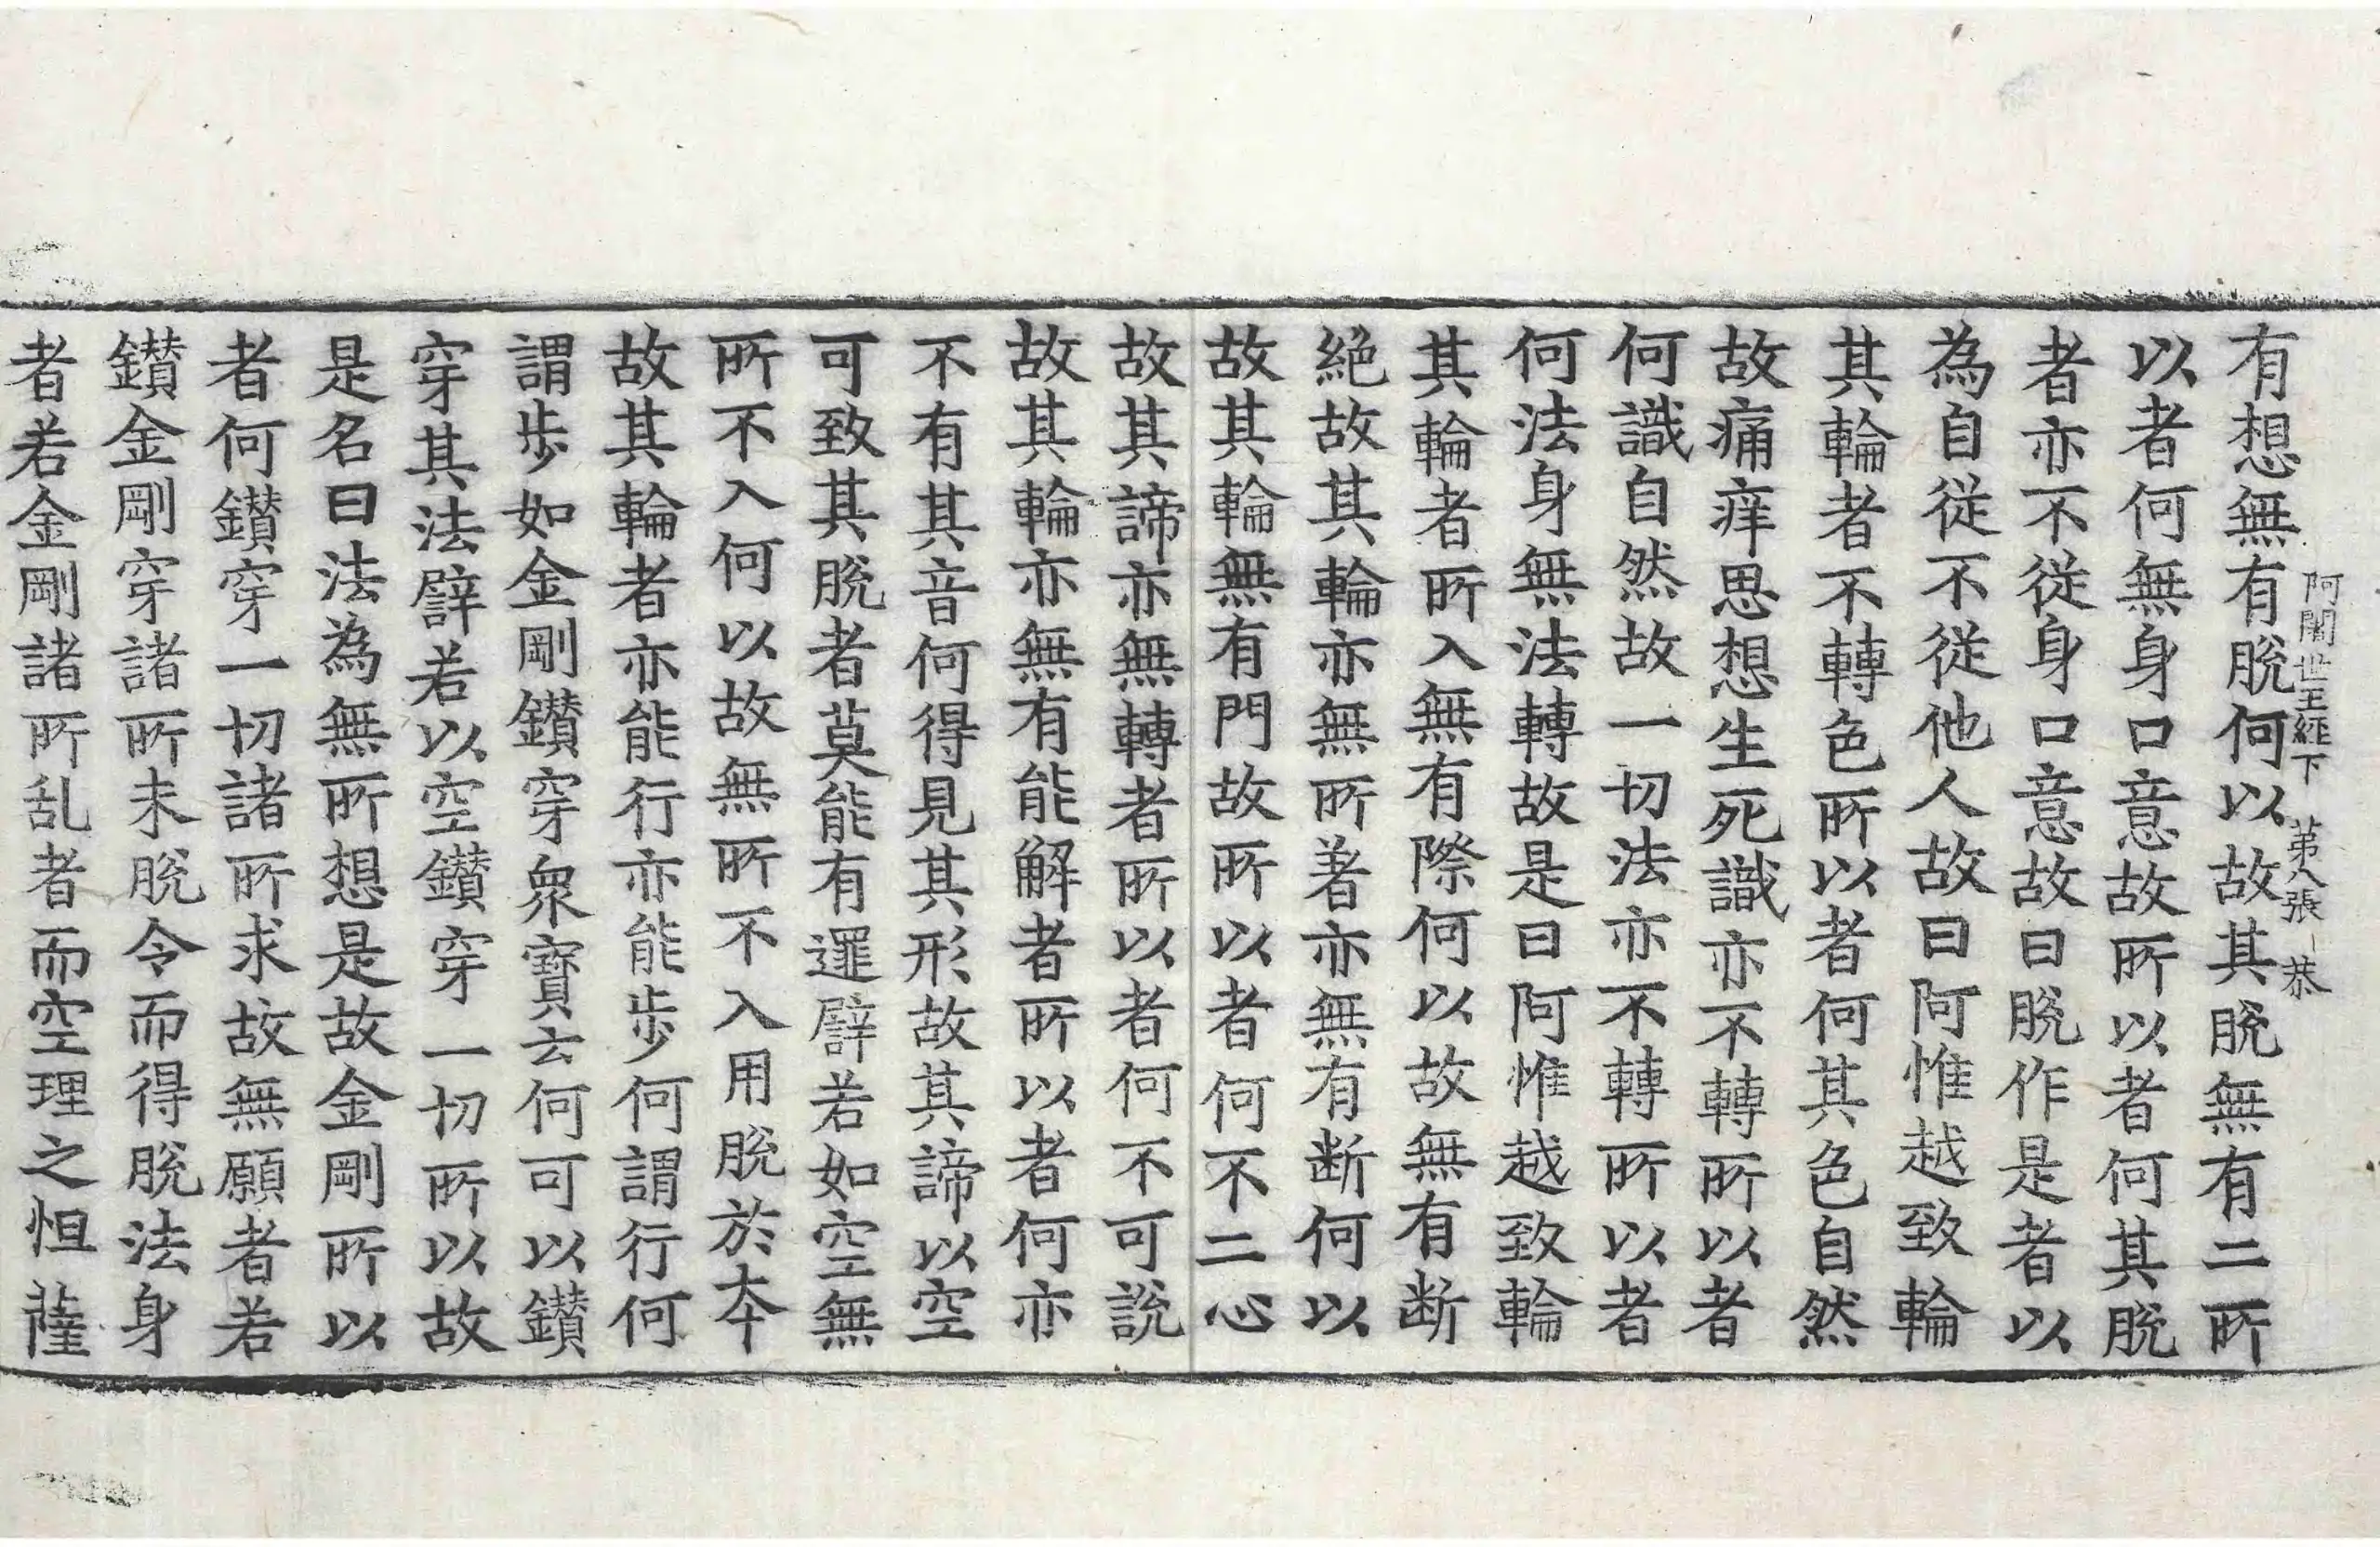 阿闍世王經下 苐八張 恭
有想無有脫何以故其脫無有二所
以者何無身口意故所以者何其脫
者亦不從身口意故曰脫作是者以
為自從不從他人故曰阿惟越致輪
其輪者不轉色所以者何其色自然
故痛痒思想生死識亦不轉所以者
何識自然故一切法亦不轉所以者
何法身無法轉故是曰阿惟越致輪
其輪者所入無有際何以故無有断
絕故其輪亦無所著亦無有断何以
故其輪無有門故所以者何不二心
故其諦亦無轉者所以者何不可說
故其輪亦無有能解者所以者何亦
不有其音何得見其形故其諦以空
可致其脫者莫能有邏譬若如空無
所不入何以故無所不入用脫於本
故其輪者亦能行亦能步何謂行何
謂步如金剛鑚穿衆寶云何可以鑚
穿其法譬若以空鑚穿一切所以故
是名曰法為無所想是故金剛所以
者何鑚穿一切諸所求故無願者若
鑚金剛穿諸所未脫令而得脫法身
者若金剛諸所乱者而空理之怛薩